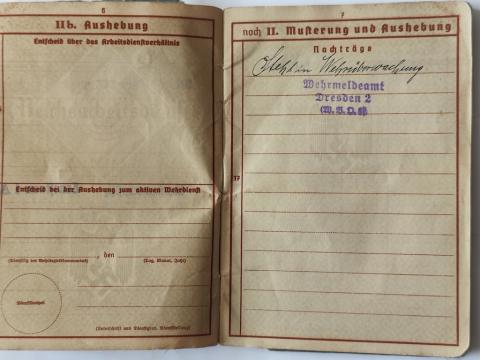 6
IIb. Aushebung
Entscheid über das Arbeitsdienstverhältnis
Entscheid bei der Aushebung zum aktiven Wehrdienst
, den
(Dienstsitz des Wehrbezirkskommandos)
(Tag, Monat, Jahr)
Dienststempel
(Unterschrift und Dienstgrad, Dienststellung)
7
noch II. Musterung und Aushebung
Nachträge
Steht in Wehrüberwachung
Wehrmeldeamt
Dresden 2
17